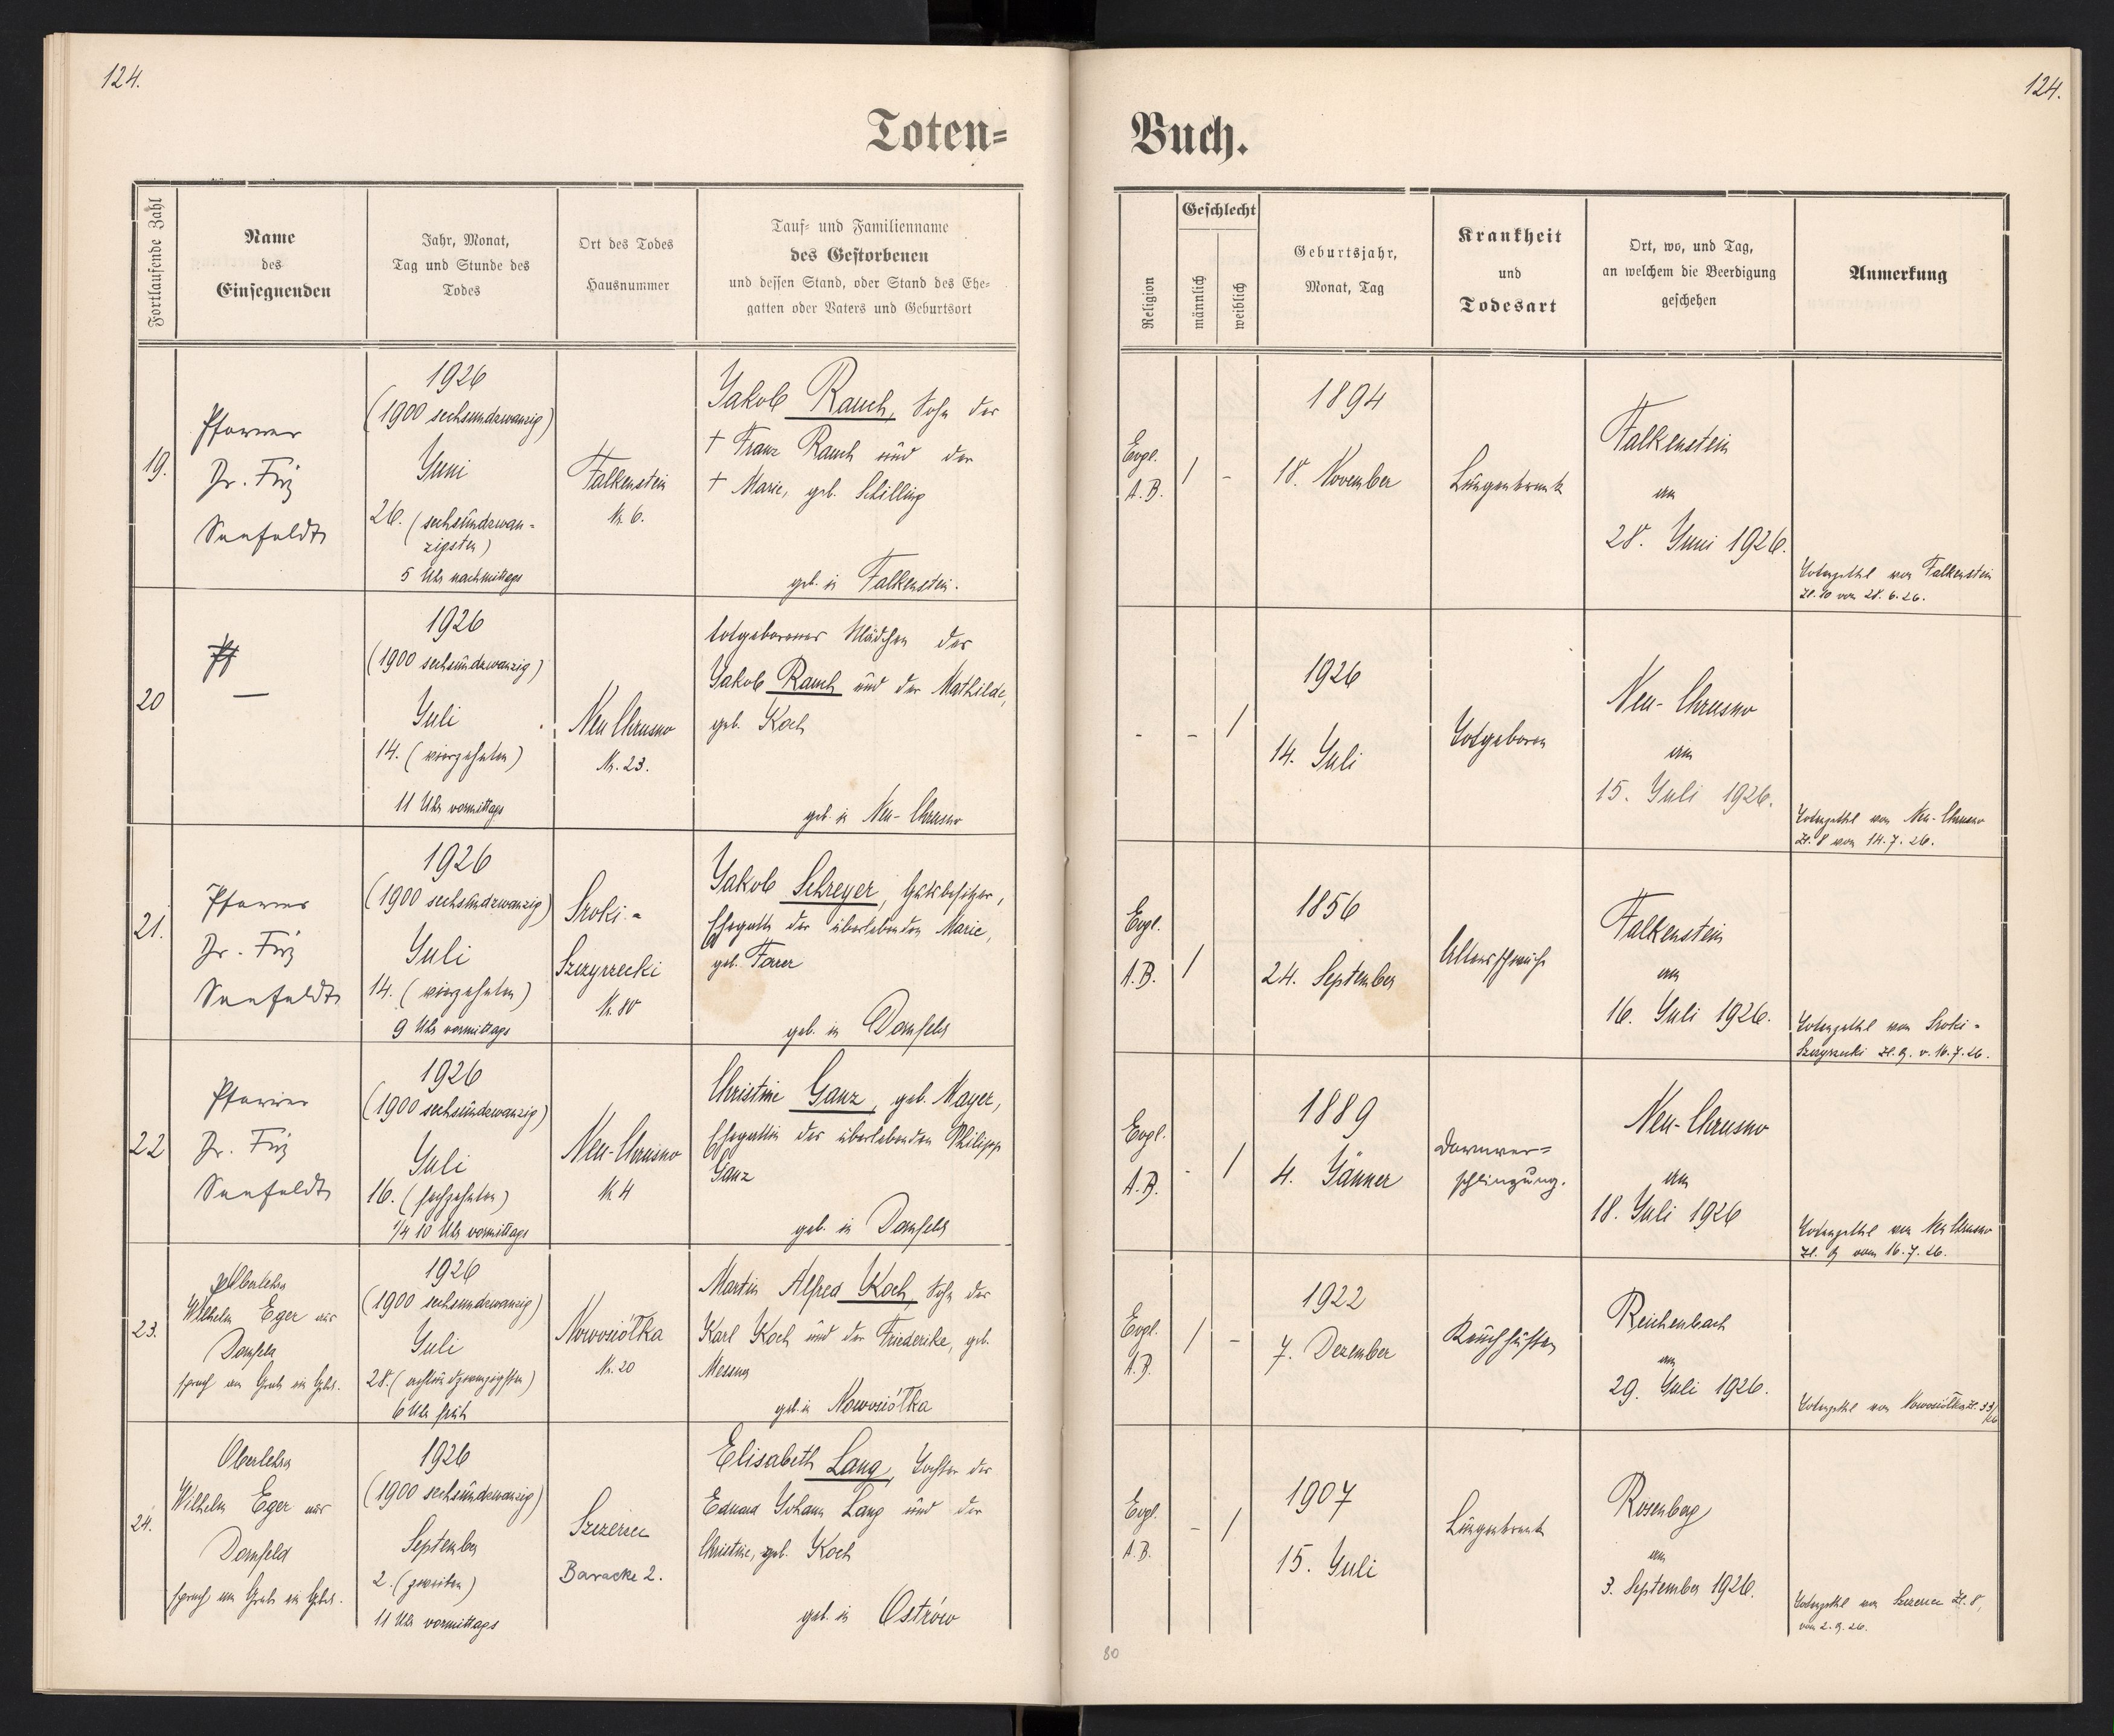 124.
124.
Toten=
Buch.
Fortlaufende Zahl
Name
des
Einsegnenden
Jahr, Monat,
Tag und Stunde des
Todes
Ort des Todes
Hausnummer
Tauf= und Familienname
des Gestorbenen
und dessen Stand, oder Stand des Ehe=
gatten oder Vaters und Geburtsort
Religion
Geschlecht
männlich
weiblich
Geburtsjahr,
Monat, Tag
Krankheit
und
Todesart
Ort, wo, und Tag,
an welchem die Beerdigung
geschehen
Anmerkung
19.
Pfarrer
Dr. Fritz
Seefeldt
1926
(1900 sechsundzwanzig)
Juni
26. (sechsundzwan-
zigsten)
5 Uhr nachmittags
Falkenstein
Nr. 6.
Jakob Rauch, Sohn des
† Franz Rauch und der
† Marie, geb. Schilling
geb. in Falkenstein.
Evgl.
A.B.
/
-
1894
18. November
Lungenkrank
Falkenstein
am
28. Juni 1926.
Totenzettel von Falkenstein
Zl. 10 vom 28.6.26.
20
—
1926
(1900 sechsundzwanzig)
Juli
14. (vierzehnten)
11 Uhr vormittags
Neu Chrusno
Nr. 23.
totgeborenes Mädchen des
Jakob Rauch und der Mathilde,
geb. Koch
geb. in Neu-Chrusno
-
-
/
1926
14. Juli
Totgeboren
Neu-Chrusno
am
15. Juli 1926.
Totenzettel von Neu-Chrusno
Zl. 8 vom 14.7.26.
21.
Pfarrer
Dr. Fritz
Seefeldt
1926
(1900 sechsundzwanzig)
Juli
14. (vierzehnten)
9 Uhr vormittags
Sroki-
Szczyrzecki
Nr. 80
Jakob Schreyer, Gutsbesitzer,
Ehegatte der überlebenden Marie,
geb. Farer
geb. in Dornfeld
Evgl.
A.B.
/
1856
24. September
Altersschwäche
Falkenstein
am
16. Juli 1926.
Totenzettel von Sroki-
Szczyrzecki Zl. 9. v. 16.7.26.
22
Pfarrer
Dr. Fritz
Seefeldt
1926
(1900 sechsundzwanzig)
Juli
16. (sechzehnten)
1/4 10 Uhr vormittags
Neu-Chrusno
Nr. 4
Christine Ganz, geb. Mayer,
Ehegattin des überlebenden Philipp
Ganz
geb. in Dornfeld
Evgl.
A.B.
-
/
1889
4. Jänner
Darmver=
schlingung.
Neu-Chrusno
am
18. Juli 1926
Totenzettel von Neu Chrusno
Zl. 9 vom 16.7.26.
23.
Oberlehrer
Wilhelm Eger aus
Dornfeld
sprach am Grab ein Gebet.
1926
(1900 sechsundzwanzig)
Juli
28. (achtundzwanzigsten)
6 Uhr früh
Nowosiółka
Nr. 20
Martin Alfred Koch, Sohn des
Karl Koch und der Friederike, geb.
Messner
geb. in Nowosiółka
Evgl.
A.B.
/
-
1922
7. Dezember
Keuchhusten
Reichenbach
am
29. Juli 1926.
Totenzettel von Nowosiółka Zl. 33/26
24.
Oberlehrer
Wilhelm Eger aus
Dornfeld
sprach am Grab ein Gebet.
1926
(1900 sechsundzwanzig)
September
2. (zweiten)
11 Uhr vormittags
Szczerzec
Baracke 2.
Elisabeth Lang, Tochter des
Eduard Johann Lang und der
Christine, geb. Koch
geb. in Ostrów
Evgl.
A.B.
-
/
1907
15. Juli
Lungenkrank
Rosenberg
am
3. September 1926.
Totenzettel von Szczerzec Zl. 8,
vom 2.9.26.
80